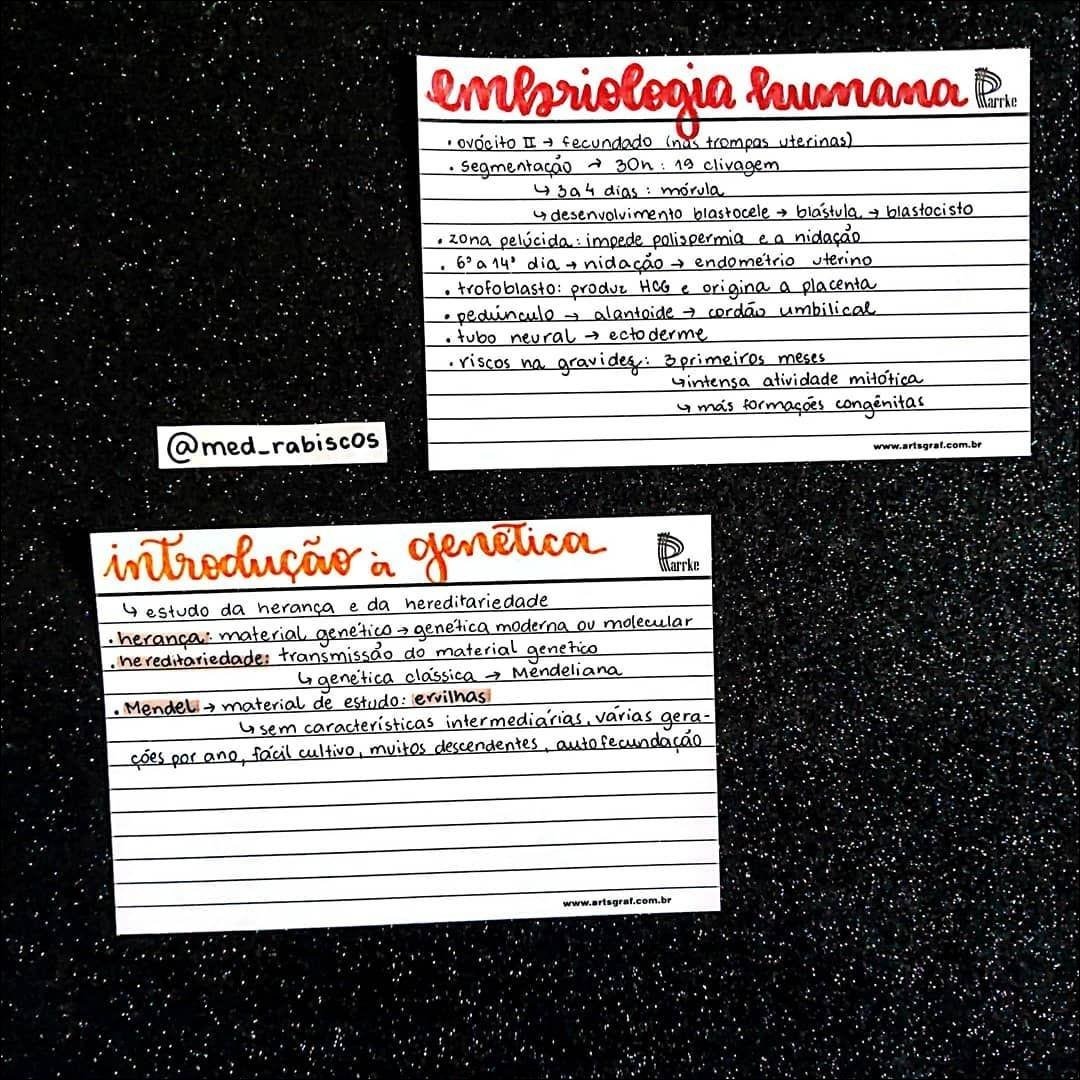 embriologia humana
Parrke
• ovócito II → fecundado (nas trompas uterinas)
• segmentação → 30h : 1ª clivagem
↳ 3 a 4 dias : mórula
↳ desenvolvimento blastocele → blástula → blastocisto
• zona pelúcida : impede polispermia e a nidação
• 6º a 14º dia → nidação → endométrio uterino
• trofoblasto: produz HCG e origina a placenta
• pedúnculo → alantoide → cordão umbilical
• tubo neural → ectoderme
• riscos na gravidez : 3 primeiros meses
↳ intensa atividade mitótica
↳ más formações congênitas
www.artsgraf.com.br
@med_rabiscos
introdução à genética
Parrke
↳ estudo da herança e da hereditariedade
• herança: material genético → genética moderna ou molecular
• hereditariedade: transmissão do material genético
↳ genética clássica → Mendeliana
• Mendel → material de estudo: ervilhas
↳ sem características intermediárias, várias gera-
ções por ano, fácil cultivo, muitos descendentes, autofecundação
www.artsgraf.com.br